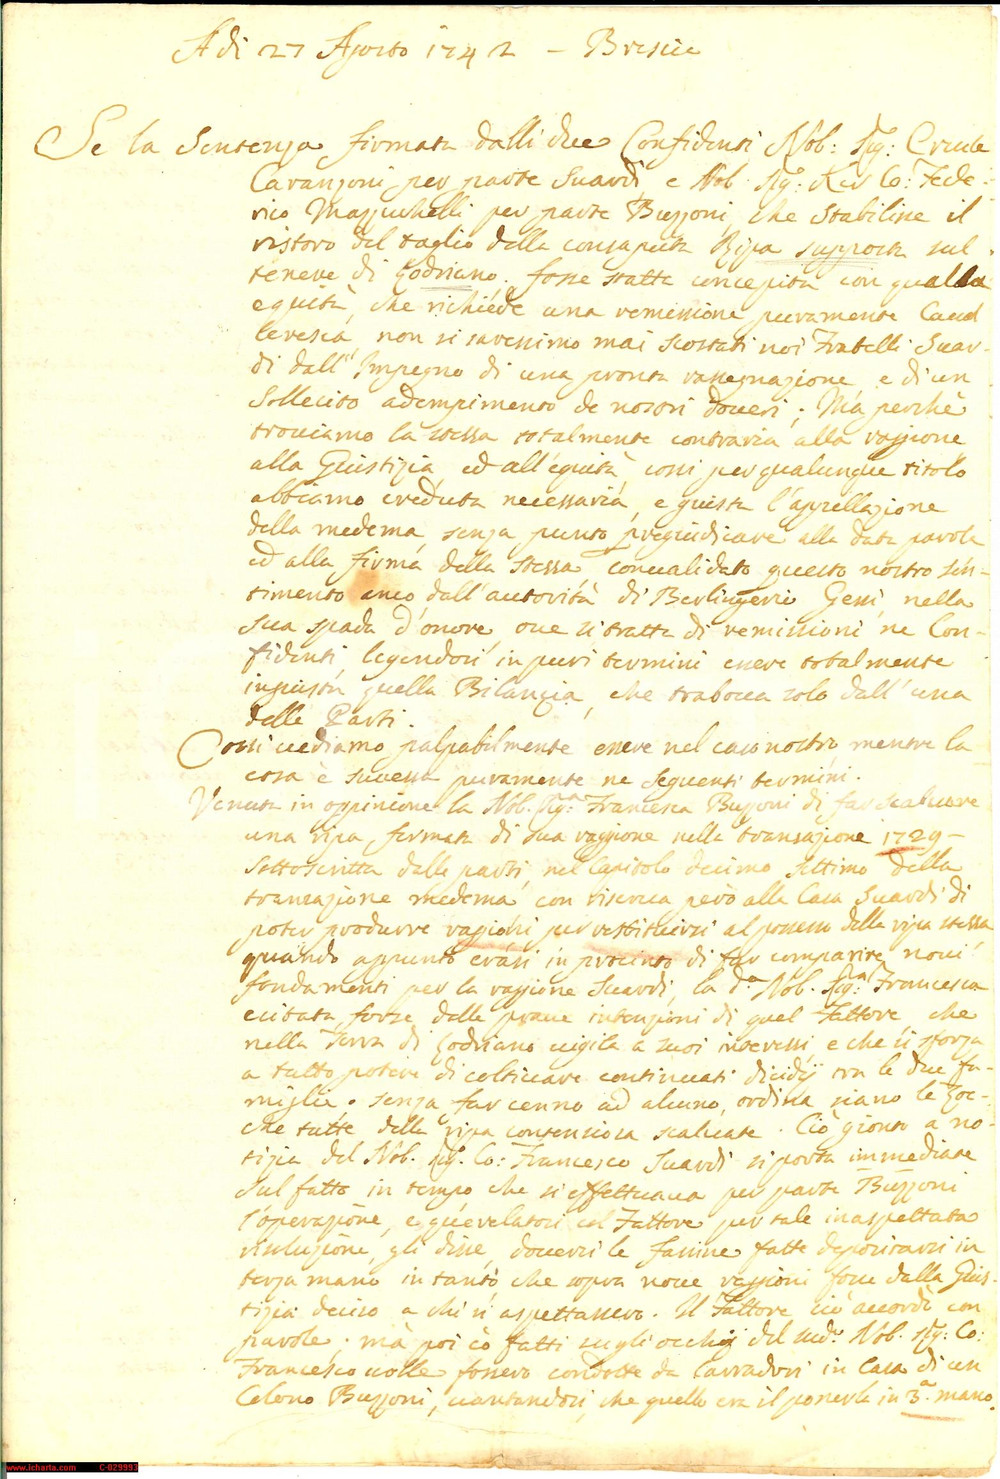 Adi 27 Agosto 1742 – Brescia
Se la Sentenza firmata dalli due Confidenti Nob: Sig:
Cavanzoni per parte Suardi, e Nob. Sig: Co: Fede-
rico Mazzuchelli per parte Buzzoni, che Stabilisse il
ristoro del taglio della consaputa Ripa supposta sul
tenere di Godriano, fosse statta concepita con qualla
equità, che richiede una remissione puramente Caval
leresca, non si saressimo mai scostati noi Fratelli Suar-
di dall'Impegno di una pronta rassegnazione, e di un
Sollecito adempimento de nostri doveri; Ma perchè
trouiamo la stessa totalmente contraria alla raggione
alla Giustizia, ed all'equità, cossi per qualunque titolo
abbiamo creduta necessaria, e giusta l'appellazione
della medema, senza punto pregiudicare alla data parola
ed alla firma della stessa, conualidato questo nostro sen-
timento anco dall'autorità di Berlingerio Gessi, nella
sua spada d'onore, oue si tratta di remissioni ne Con-
fidenti, legendosi in puri termini essere totalmente
ingiusta quella Bilancia, che trabocca solo dall'una
delle Parti.
Cossi uediamo palpabilmente essere nel caso nostro, mentre la
cosa è successa puramente ne seguenti termini.
Venuta in oppinione la Nob. Sig:ra Francesca Buzzoni di far scaluare
una ripa, fermata di sua raggione nella transazione 1729–
Sottoscritta dalle parti, nel Capitolo decimo settimo della
transazione medema, con riserua però alla Casa Suardi di
poter produrre ragioni per restituirsi al possesso della ripa stessa
quando appunto erasi in procinto di far comparire noui
fondamenti per la raggione Suardi, la d.a Nob. Sig.ra Francesca
ecitata forse dalle praue intenzioni di quel Fattore, che
nella Terra di Godriano uigila a suoi interessi, e che si sforza
a tutto potere di coltiuare continuati dicidij tra le due fa-
miglie, senza far cenno ad alcuno, ordina siano le Zoc-
che tutte della ripa contensiosa scaluate. Ciò gionto a no-
tizia del Nob. Sig: Co: Francesco Suardi si porta immediate
sul fatto in tempo che si effettuaua per parte Buzzoni
l'operazione, e col Fattore per tale inaspettata
risoluzione, gli disse, douersi le fassine fatte depositarsi in
terza mano in tanto, che sopra noue raggioni fosse dalla Gius-
tizia deciso a chi s'aspettassero. Il Fattore ciò accordò con
parole, mà poi cò fatti sugli occhij del sud.o Nob. Sig: Co:
Francesco uolle fossero condotte da Carradori in Casa di un
Colono Buzzoni, uantandosi, che quello era il ponerle in 3.a mano.
www.icharta.com C-029993